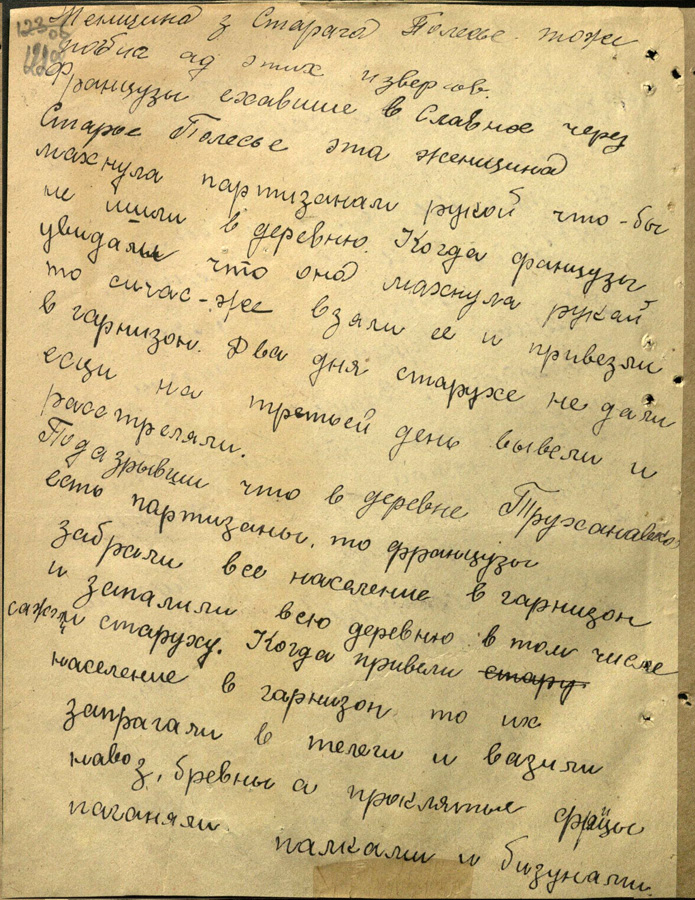 Женщина з Старага Полесье тоже
ад этих извергов.
французы ехавшие в Славное через
Старые Полесье эта женщина
махнула партизанам рукой что-бы
не йшли в деревню. Когда французы
увидали что она махнула рукай
то сичас-же взяли ее и привезли
в гарнизон. Два дня старухе не дали
есци на третьей день вывели и
расстреляли.
Подазрывши что в деревне
есть партизаны, то французы
забрали все население в гарнизон
и запалили всю деревню в том числе
сажгли старуху. Когда привели стару
население в гарнизон то их
запрагали в телеги и вазили
навоз, бревны а проклятые фрицы
паганяли палками и бизунами.